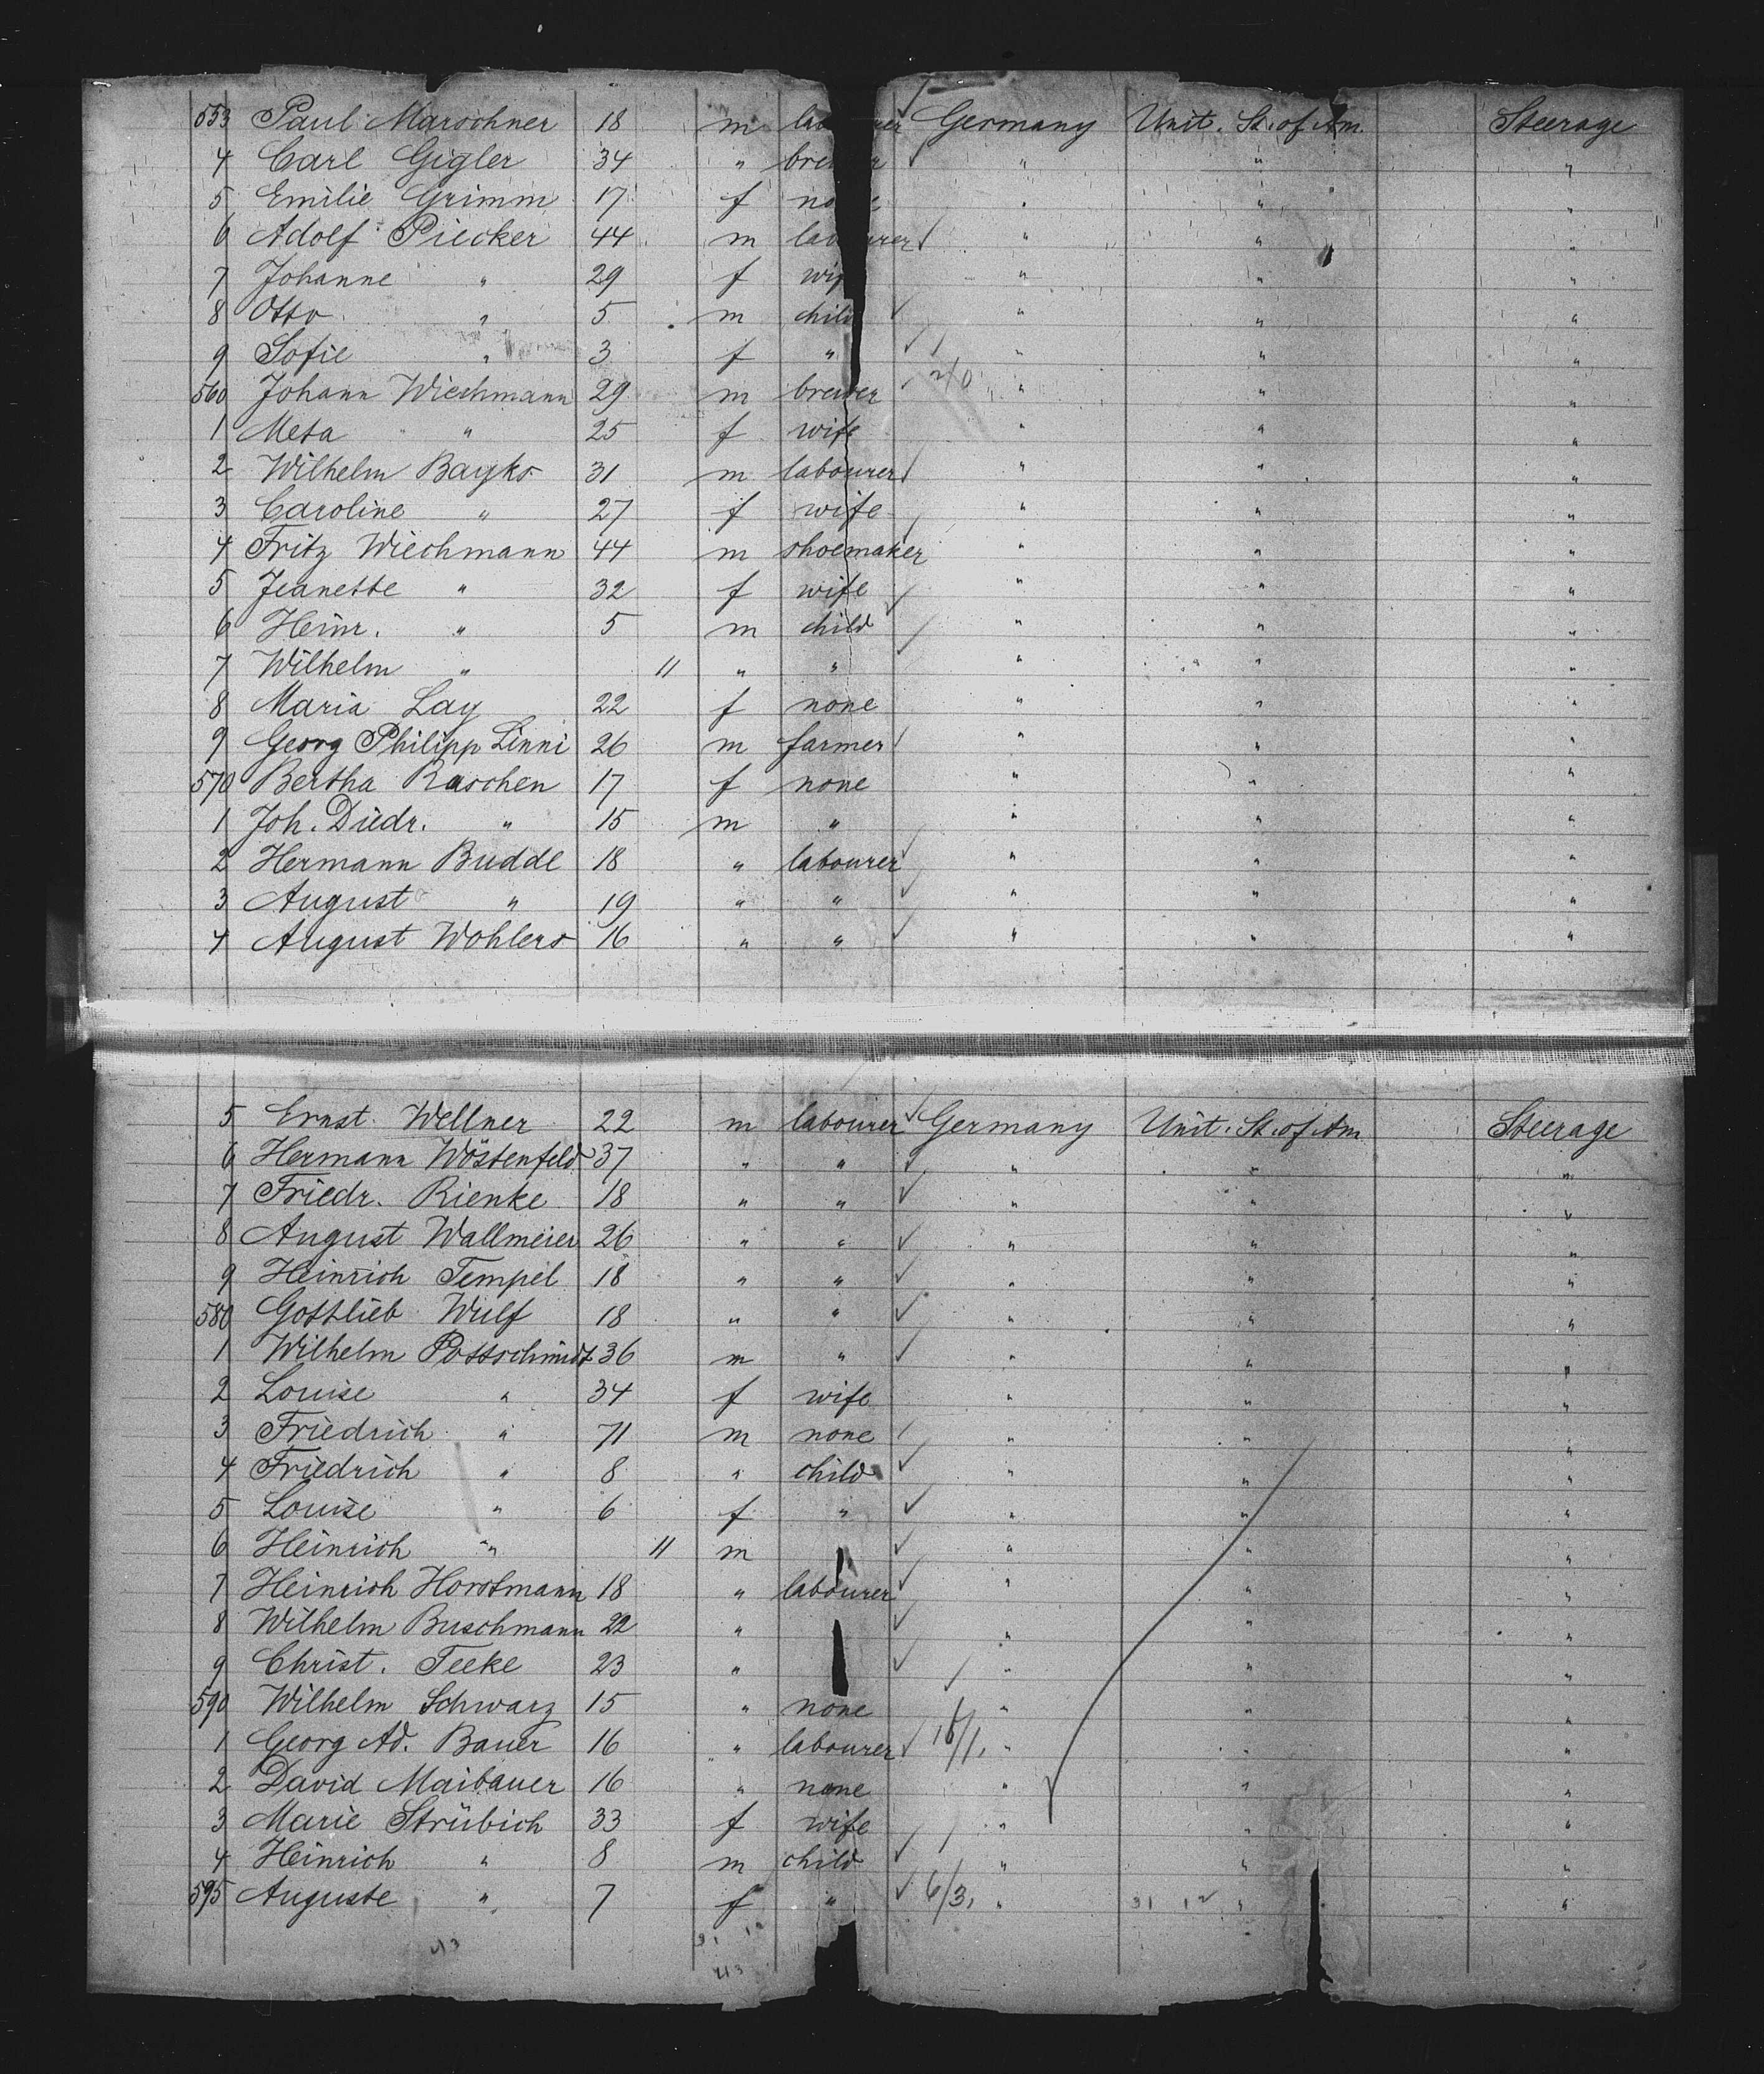 553 Paul Marschner 18 m labourer Germany Unit. St. of Am. Steerage
4 Carl Gigler 34 " brewer " " "
5 Emilie Grimm 17 f none " " "
6 Adolf Piecker 44 m labourer " " "
7 Johanne " 29 f wife " " "
8 Otto " 5 m child " " "
9 Sofie " 3 f " " " "
560 Johann Wiechmann 29 m brewer 2/0 " " "
1 Meta " 25 f wife " " "
2 Wilhelm Bayko 31 m labourer " " "
3 Caroline " 27 f wife " " "
4 Fritz Wiechmann 44 m shoemaker " " "
5 Jeanette " 32 f wife " " "
6 Heinr. " 5 m child " " "
7 Wilhelm " 11 " " " " "
8 Maria Lay 22 f none " " "
9 Georg Philipp Linni 26 m farmer " " "
570 Bertha Raschen 17 f none " " "
1 Joh. Diedr. " 15 m " " " "
2 Hermann Budde 18 " labourer " " "
3 August " 19 " " " " "
4 August Wohlers 16 " " " " "
5 Ernst Wellner 22 m labourer Germany Unit. St. of Am. Steerage
6 Hermann Wöstenfeld 37 " " " " "
7 Friedr. Rienke 18 " " " " "
8 August Wallmeier 26 " " " " "
9 Heinrich Tempel 18 " " " " "
580 Gottlieb Wulf 18 " " " " "
1 Wilhelm Pottschmidt 36 m " " " "
2 Louise " 34 f wife " " "
3 Friedrich " 71 m none " " "
4 Friedrich " 8 " child " " "
5 Louise " 6 f " " " "
6 Heinrich " 11 m " " "
7 Heinrich Horstmann 18 " labourer " " "
8 Wilhelm Buschmann 22 " " " "
9 Christ. Teeke 23 " " " "
590 Wilhelm Schwarz 15 " none " " "
1 Georg Ad. Bauer 16 " labourer 16/1. " " "
2 David Maibauer 16 " none " " "
3 Marie Strübich 33 f wife " " "
4 Heinrich " 8 m child " " "
595 Auguste " 7 f " 6/3. " 31 12 " "
413 31 12
413